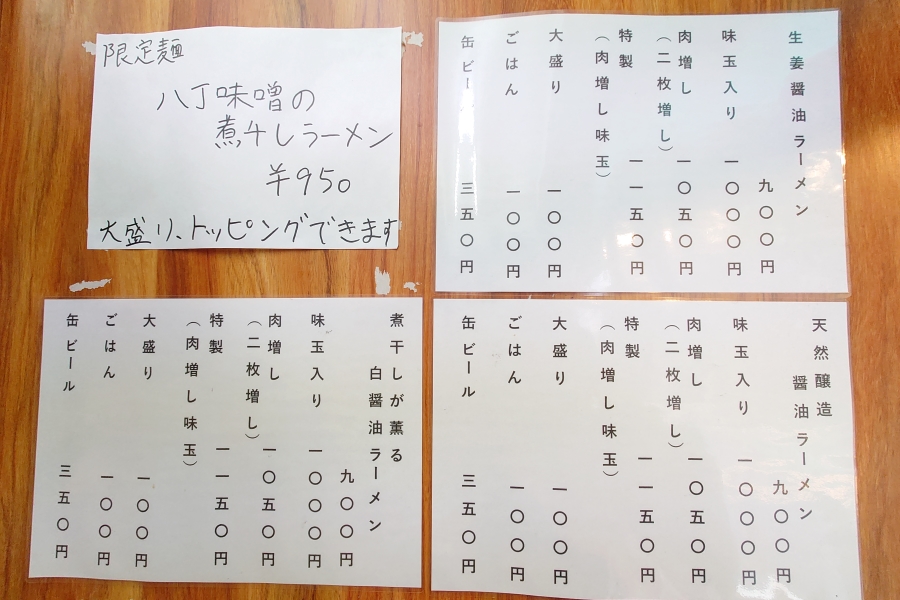 限定麺
八丁味噌の
煮干しラーメン
¥950
大盛り、トッピングできます
生姜醤油ラーメン
九〇〇円
味玉入り 一〇〇〇円
肉増し 一〇五〇円
（二枚増し）
特製 一一五〇円
（肉増し味玉）
大盛り 一〇〇円
ごはん 一〇〇円
缶ビール 三五〇円
煮干しが薫る
白醤油ラーメン
九〇〇円
味玉入り 一〇〇〇円
肉増し 一〇五〇円
（二枚増し）
特製 一一五〇円
（肉増し味玉）
大盛り 一〇〇円
ごはん 一〇〇円
缶ビール 三五〇円
天然醸造
醤油ラーメン
九〇〇円
味玉入り 一〇〇〇円
肉増し 一〇五〇円
（二枚増し）
特製 一一五〇円
（肉増し味玉）
大盛り 一〇〇円
ごはん 一〇〇円
缶ビール 三五〇円